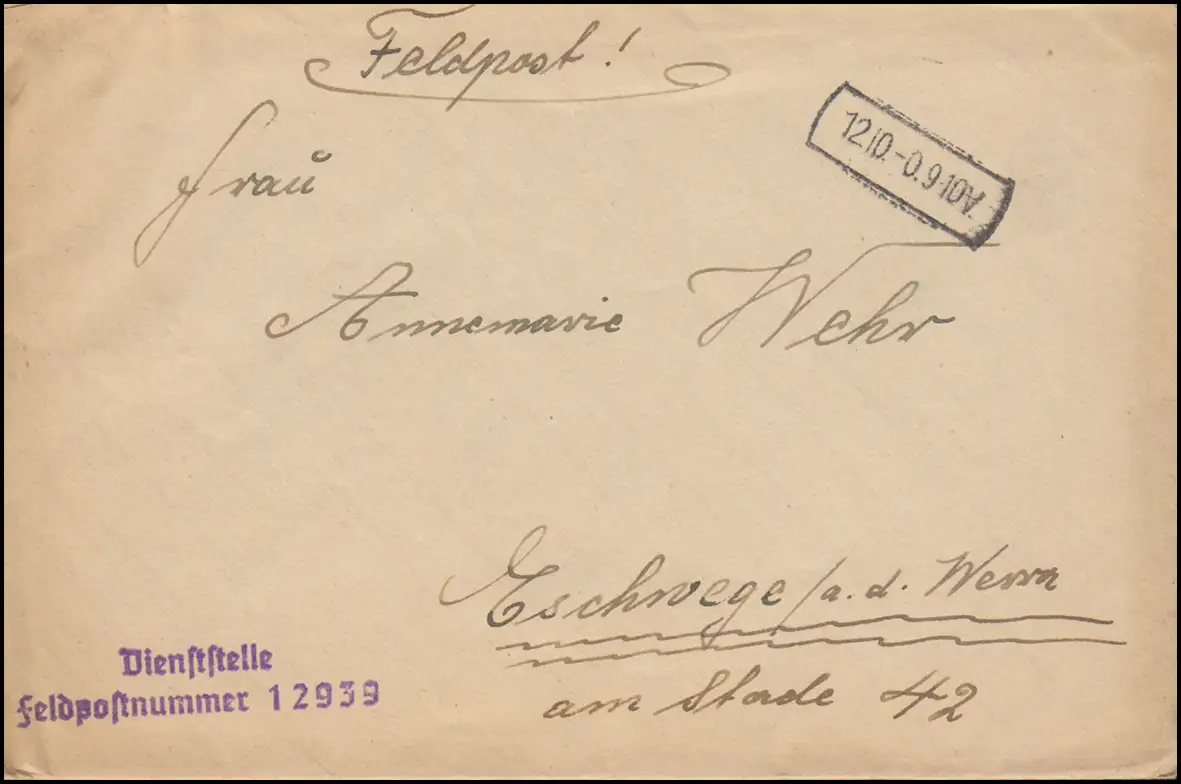 Feldpost!
12.10.-0.9-10V.
Frau
Annemarie Wehr
Eschwege/a. d. Werra
am Stade 42
Dienststelle
Feldpostnummer 12939